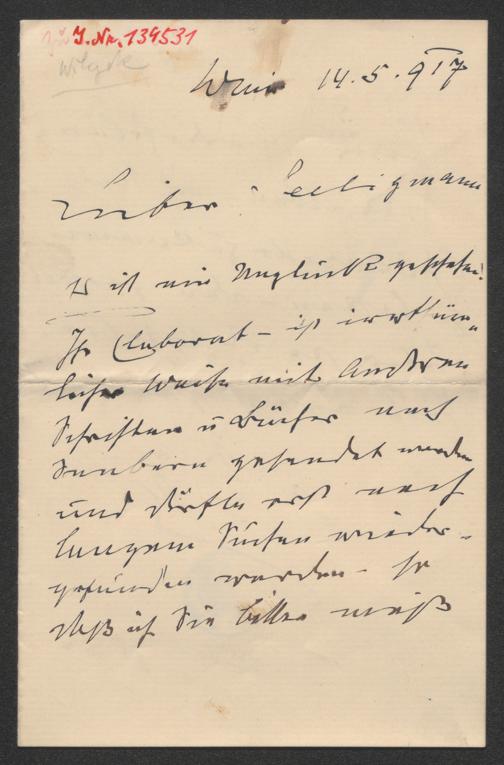 J. Nr. 139531
Wilczek
Wien 14.5.917
Lieber Seeligmann
Es ist ein Unglück geschehen!
Ihr Elaborat – ist irrthüm„
licher Weise mit Anderen
Schriften u Bücher nach
gesendet worden
und dürfte erst nach
langem Suchen wieder-
gefunden werden – so
daß ich Sie bitten muß